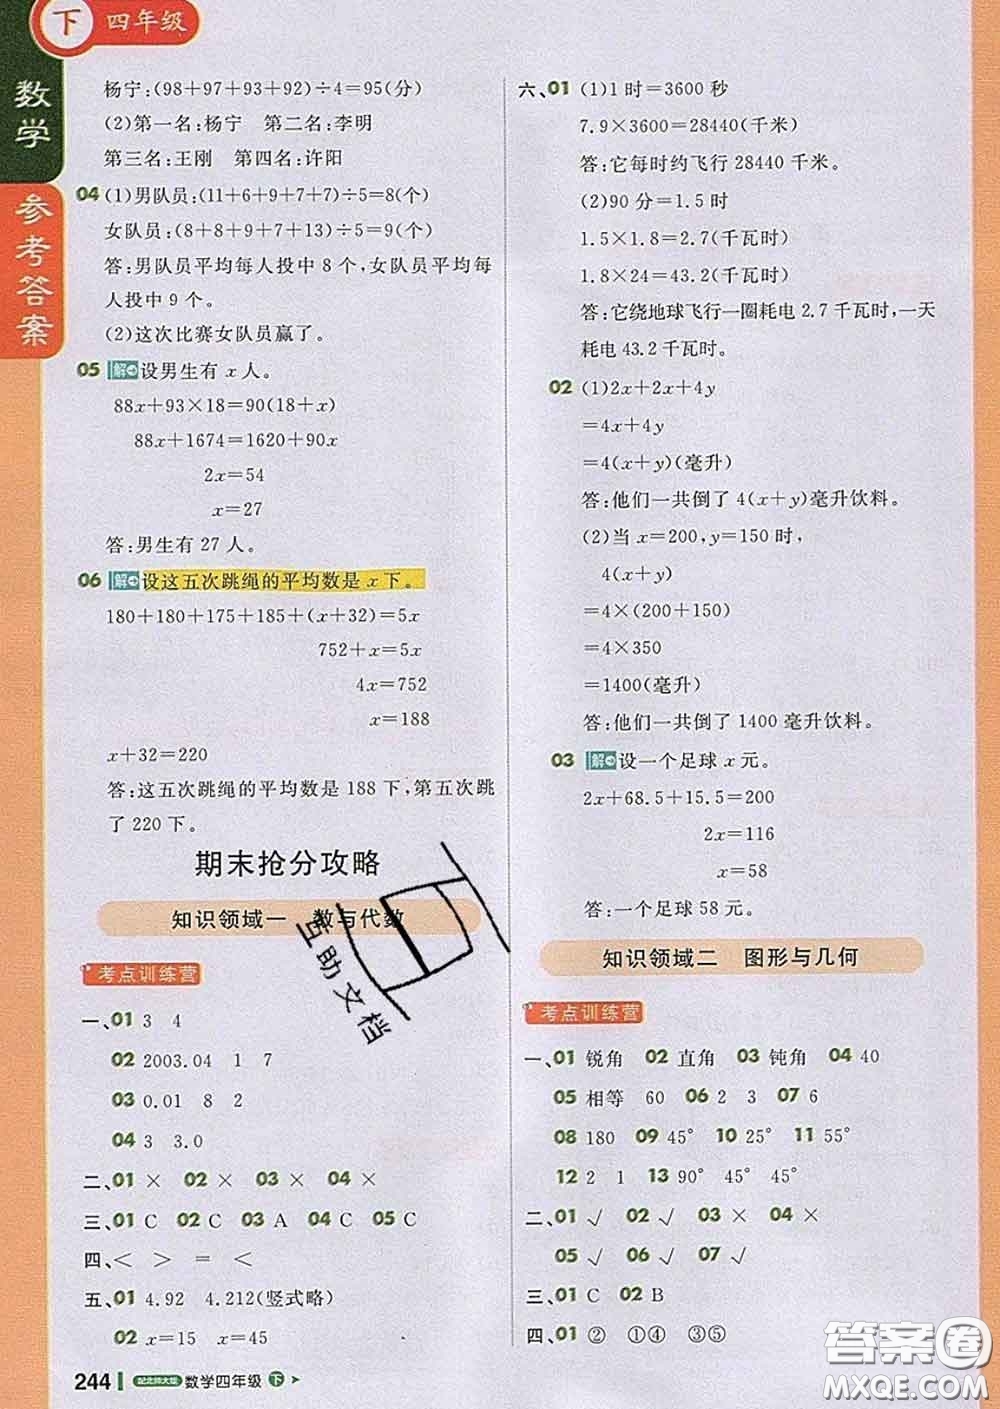 下 四年级
数学
参考答案
杨宁:(98+97+93+92)÷4=95(分)
(2)第一名:杨宁 第二名:李明
第三名:王刚 第四名:许阳
04 (1)男队员:(11+6+9+7+7)÷5=8(个)
女队员:(8+8+9+7+13)÷5=9(个)
答:男队员平均每人投中 8 个,女队员平均每
人投中 9 个。
(2)这次比赛女队员赢了。
05 解 设男生有 x 人。
88x+93×18=90(18+x)
88x+1674=1620+90x
2x=54
x=27
答:男生有 27 人。
06 解 设这五次跳绳的平均数是 x 下。
180+180+175+185+(x+32)=5x
752+x=5x
4x=752
x=188
x+32=220
答:这五次跳绳的平均数是 188 下,第五次跳
了 220 下。
期末抢分攻略
知识领域一 数与代数
考点训练营
一、01 3 4
02 2003.04 1 7
03 0.01 8 2
04 3 3.0
二、01 × 02 × 03 × 04 ×
三、01 C 02 C 03 A 04 C 05 C
四、< > = <
五、01 4.92 4.212(竖式略)
02 x=15 x=45
244 配北师大版 数学四年级 下
六、01 (1)1 时=3600 秒
7.9×3600=28440(千米)
答:它每时约飞行 28440 千米。
(2)90 分=1.5 时
1.5×1.8=2.7(千瓦时)
1.8×24=43.2(千瓦时)
答:它绕地球飞行一圈耗电 2.7 千瓦时,一天
耗电 43.2 千瓦时。
02 (1)2x+2x+4y
=4x+4y
=4(x+y)(毫升)
答:他们一共倒了 4(x+y)毫升饮料。
(2)当 x=200,y=150 时,
4(x+y)
=4×(200+150)
=4×350
=1400(毫升)
答:他们一共倒了 1400 毫升饮料。
03 解 设一个足球 x 元。
2x+68.5+15.5=200
2x=116
x=58
答:一个足球 58 元。
知识领域二 图形与几何
考点训练营
一、01 锐角 02 直角 03 钝角 04 40
05 相等 60 06 2 3 07 6
08 180 09 45° 10 25° 11 55°
12 2 1 13 90° 45° 45°
二、01 √ 02 √ 03 × 04 ×
05 √ 06 √ 07 √
三、01 C 02 B
四、01 ② ①④ ③⑤
互助文档
答案圈
MXQE.COM